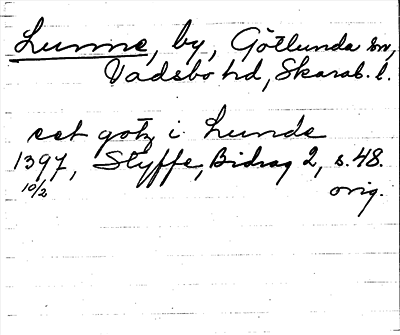 Lunne, by, Götlunda sn,
Vadsbo hd, Skarab. l.
eet gotz i Lunde
1397, Styffe, Bidrag 2, s. 48.
10/2 orig.